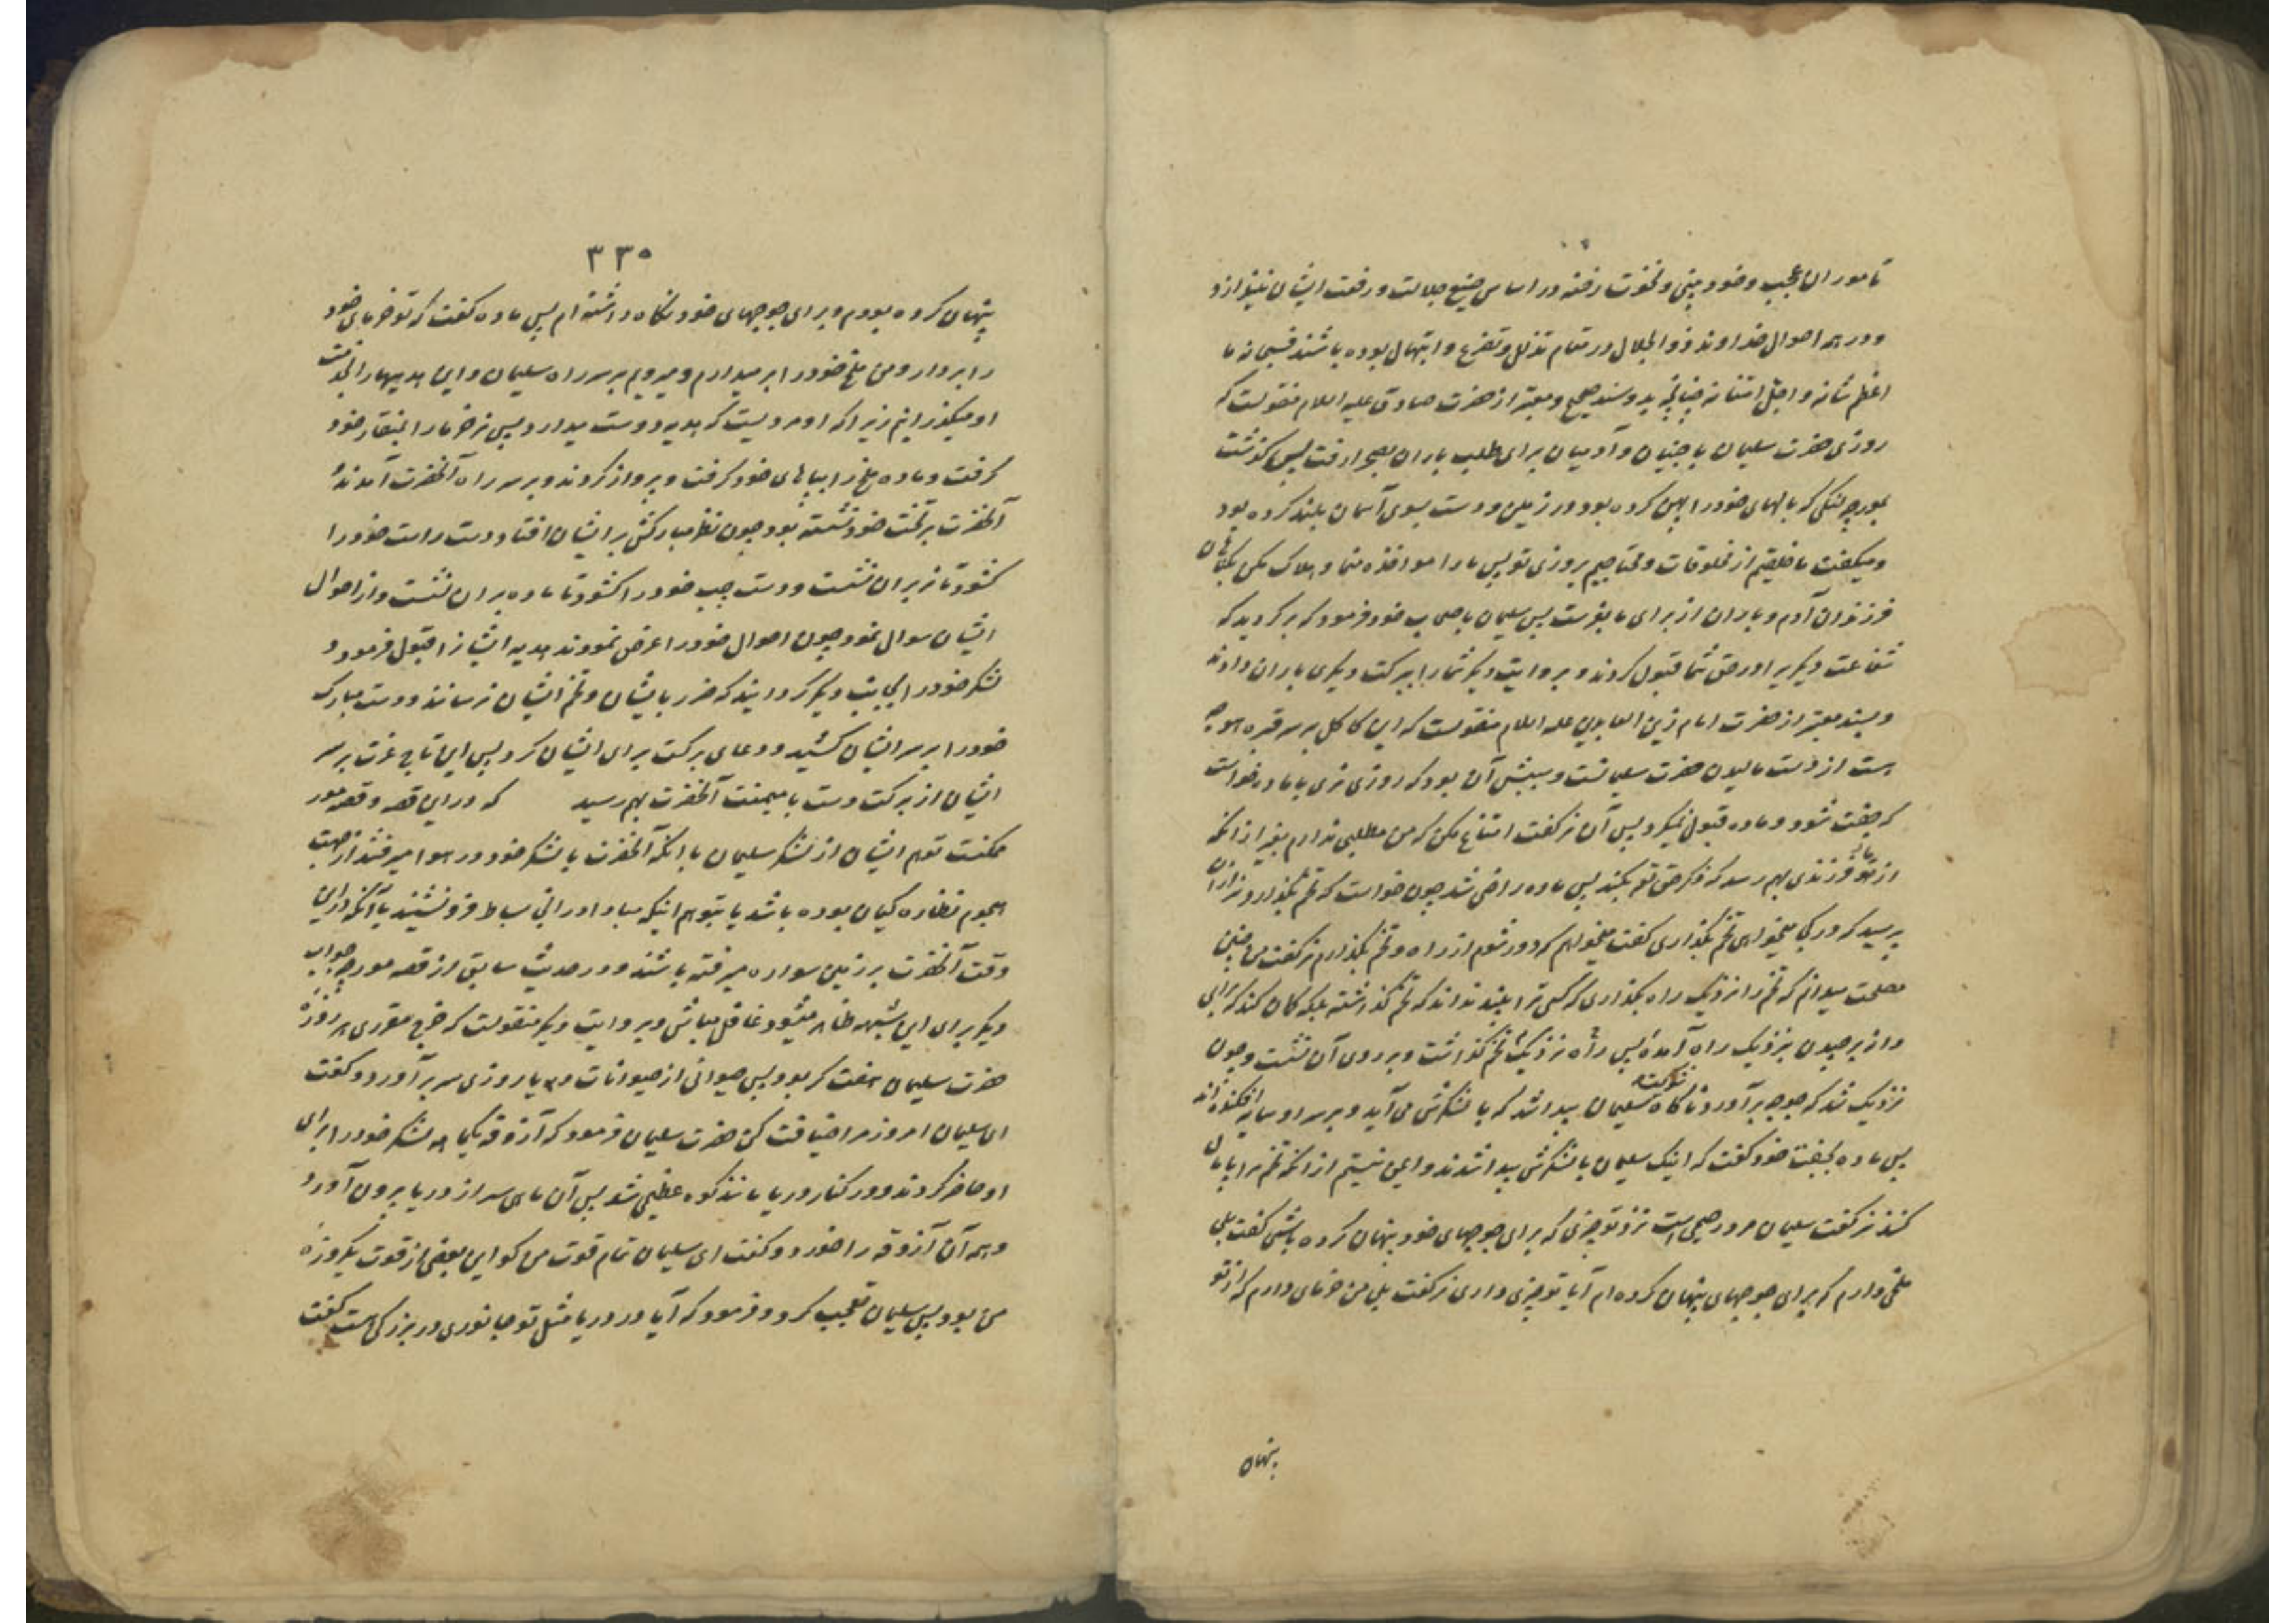 تا موران عجب و خودبینی و نخوت رخنه در اساس منیع جلالت و رفعت ایشان نیندازد
و در همه احوال خداوند ذو الجلال در مقام تذلل و تضرع و ابتهال بوده باشند فسبحانه ما
اعظم شانه و اجل امتنانه چنانچه بدو سند صحیح و معتبر از حضرت صادق علیه السلام منقولست که
روزی حضرت سلیمان با جنیان و آدمیان برای طلب باران بصحرا رفت پس گذشت
بمورچه لنگی که بالهای خود را پهن کرده بود در زمین و دست بسوی آسمان بلند کرده بود
و میگفت ما خلقیم از مخلوقات و محتاجیم بروزی تو پس ما را مواخذه منما و هلاک مکن بگناهان
فرزندان آدم و باران از برای ما بفرست پس سلیمان باصحاب خود فرمود که برگردید که
شفاعت دیگری را در حق شما قبول کردند و بروایت دیگر شما را ببرکت دیگری باران دادند
و بسند معتبر از حضرت امام زین العابدین علیه السلام منقولست که این کاکل بر سر قبره هوجه
هست از دست مالیدن حضرت سلیمانست و سببش آن بود که روزی نری با ماده خواست
که جفت شود و ماده قبول نمیکرد پس آن نر گفت امتناع مکن که من مطلبی ندارم بغیر از آنکه
از ما و تو فرزندی بهم رسد که ذکر حق تعالی بکند پس ماده راضی شد چون خواست که تخم بگذارد نر از آن
پرسید که در کجا میخواهی تخم بگذاری گفت میخواهم که دور شوم از راه و تخم بگذارم نر گفت من چنین
مصلحت میدانم که تخم را نزدیک راه بگذاری که کسی ترا ببیند نداند که تخم گذاشته بلکه گمان کند که برای
دانه برچیدن بنزدیک راه آمدهٔ پس نزدیک راه تخم گذاشت و بر روی آن نشست و چون
نزدیک شد که جوجه برآورد ناگاه شوکت سلیمان پیدا شد که با لشکرش می آید و بر سر او سایه افکنده اند
پس ماده بجفت خود گفت که اینک سلیمان با لشکرش پیدا شدند و ایمن نیستم از آنکه تخم مرا پایمال
کند نر گفت سلیمان مرد رحیمی است نزد تو چیزی که برای جوجهای خود پنهان کرده باشی گفت بلی
ملخی دارم که برای جوجهای پنهان کرده ام آیا تو چیزی داری نر گفت بلی من خرمای دارم که از تو
پنهان
۳۳۵
پنهان کرده بودم و برای جوجهای خود نگاه داشته ام پس ماده گفت که تو خرمای خود
را بردار و من ملخ خود را بر میدارم و میرویم بر سر راه سلیمان و این هدیهها را بخدمت
او میگذرانیم زیرا که او مردیست که هدیه دوست میدارد پس نر خرما را بمنقار خود
گرفت و ماده ملخ را بپاهای خود گرفت و پرواز کردند و بر سر راه آنحضرت آمدند
آنحضرت بر تخت خود نشسته بود چون نظر مبارکش بر ایشان افتاد دست راست خود را
گشود تا نر بران نشست و دست چپ خود را گشود تا ماده بران نشست و از احوال
ایشان سوال نمود چون احوال خود را عرض نمودند هدیه ایشان را قبول فرمود و
لشکر خود را بجانب دیگر گردانید که ضرر بایشان و تخم ایشان نرسانند و دست مبارک
خود را بر سر ایشان کشید و دعای برکت برای ایشان کرد پس این تاج عزت بر سر
ایشان از برکت دست با میمنت آنحضرت بهم رسید که در این قصه و قصه مور
ممکنست توهم ایشان از لشکر سلیمان با آنکه آنحضرت با لشکر خود در هوا میرفتند از جهت
هجوم نظاره کیان بوده باشد یا بتوهم اینکه مبادا در اثنای بساط فرو نشینند یا آنکه در این
وقت آنحضرت بر زمین سواره میرفته باشند و در حدیث سابق از قصه مورچه جواب
دیگر برای این شبهه ظاهر میشود غافل مباش و بروایت دیگر منقولست که خرج مقرری هر روزه
حضرت سلیمان هفت کر بود پس حیوانی از حیوانات دریا روزی سر برآورد و گفت
ای سلیمان امروز مرا ضیافت کن حضرت سلیمان فرمود که آزوقه یکماهه لشکر خود را برای
او حاضر کردند و در کنار دریا مانند کوه عظیمی شد پس آن ماهی سر از دریا بیرون آورد
و همه آن آزوقه را خورد و گفت ای سلیمان تمام قوت من کو این بعضی از قوت یکروزه
من بود پس سلیمان تعجب کرد و فرمود که آیا در دریا مثل تو جانوری در بزرگی هست گفت